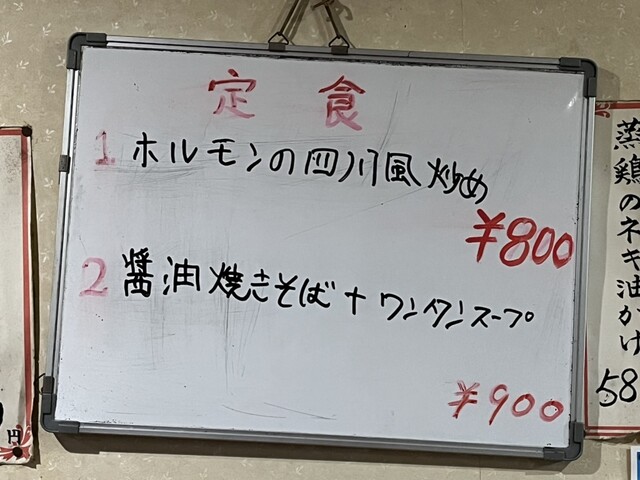 定食
1 ホルモンの四川風炒め
¥800
2 醤油焼きそば+ワンタンスープ
¥900
蒸鶏のネギ油かけ
58
円